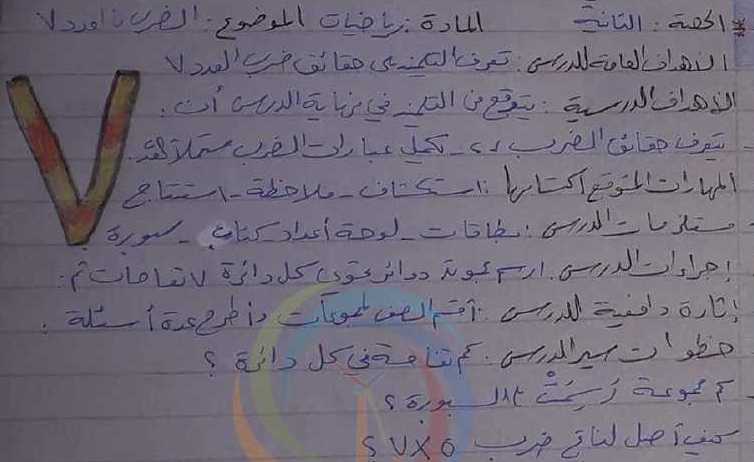 الحصة : الثانية المادة : رياضيات الموضوع : الضرب بالعدد ٧
الأهداف العامة للدرس : تعرف التلميذ على حقائق ضرب العدد ٧
الأهداف الدرسية : يتوقع من التلميذ في نهاية الدرس أن :
يتعرف حقائق الضرب لـ ٧ - يكمل عبارات الضرب مستعملاً
المهارات المتوقع اكتسابها : استكشاف - ملاحظة - استنتاج
مستلزمات الدرس : بطاقات - لوحة أعداد - كتاب - سبورة
إجراءات الدرس : ارسم دوائر تحتوي كل دائرة ٧ تفاحات ثم :
إثارة دافعية للدرس : أقسم الصف لمجموعات وأطرح عدة أسئلة :
خطوات سير الدرس : كم تفاحة في كل دائرة ؟
كم مجموعة رُسِمَتْ على السبورة ؟
كيف أصل لناتج ضرب ٥ × ٧ ؟
٧